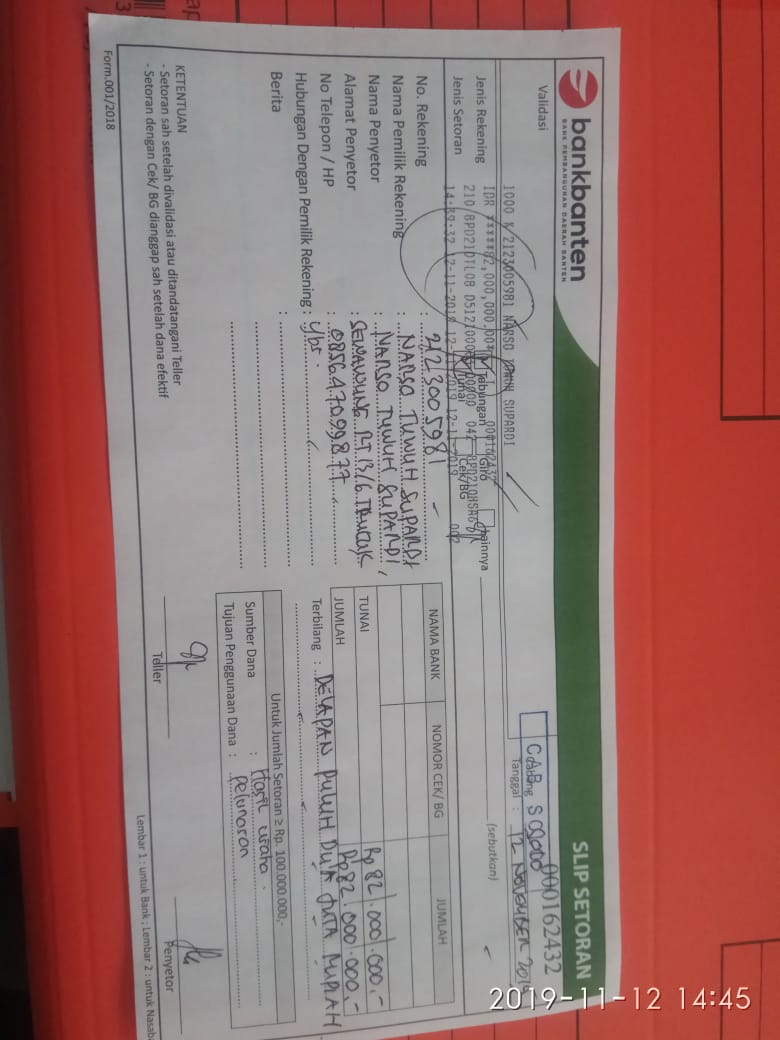 bankbanten
BANK PEMBANGUNAN DAERAH BANTEN
SLIP SETORAN
000162432
Validasi
1000 K 2123005981 NARSO SUPARDI
IDR *****82,000,000.00* 000162432
14:39:32 12-11-2019 12-11-2019 12-11-2019 002
CAB
Cabang
Tanggal : 12 NOVEMBER
Jenis Rekening
Tabungan Giro Lainnya (sebutkan)
Jenis Setoran
Tunai Cek/BG
No. Rekening : 2123005981
Nama Pemilik Rekening : NARSO TUWUH SUPARDI
Nama Penyetor : NARSO TUWUH SUPARDI
Alamat Penyetor : RT 13/6 TRUCUK
No Telepon / HP : 085647099877
Hubungan Dengan Pemilik Rekening : Ybs.
Berita :
NAMA BANK NOMOR CEK/ BG JUMLAH
TUNAI Rp 82.000.000,-
JUMLAH Rp 82.000.000,-
Terbilang : DELAPAN PULUH DUA JUTA RUPIAH
Untuk Jumlah Setoran ≥ Rp. 100.000.000,-
Sumber Dana : Hasil usaha
Tujuan Penggunaan Dana : pelunasan
KETENTUAN
- Setoran sah setelah divalidasi atau ditandatangani Teller
- Setoran dengan Cek/ BG dianggap sah setelah dana efektif
Teller
Penyetor
Form.001/2018
Lembar 1 : untuk Bank ; Lembar 2 : untuk Nasab
2019-11-12 14:45